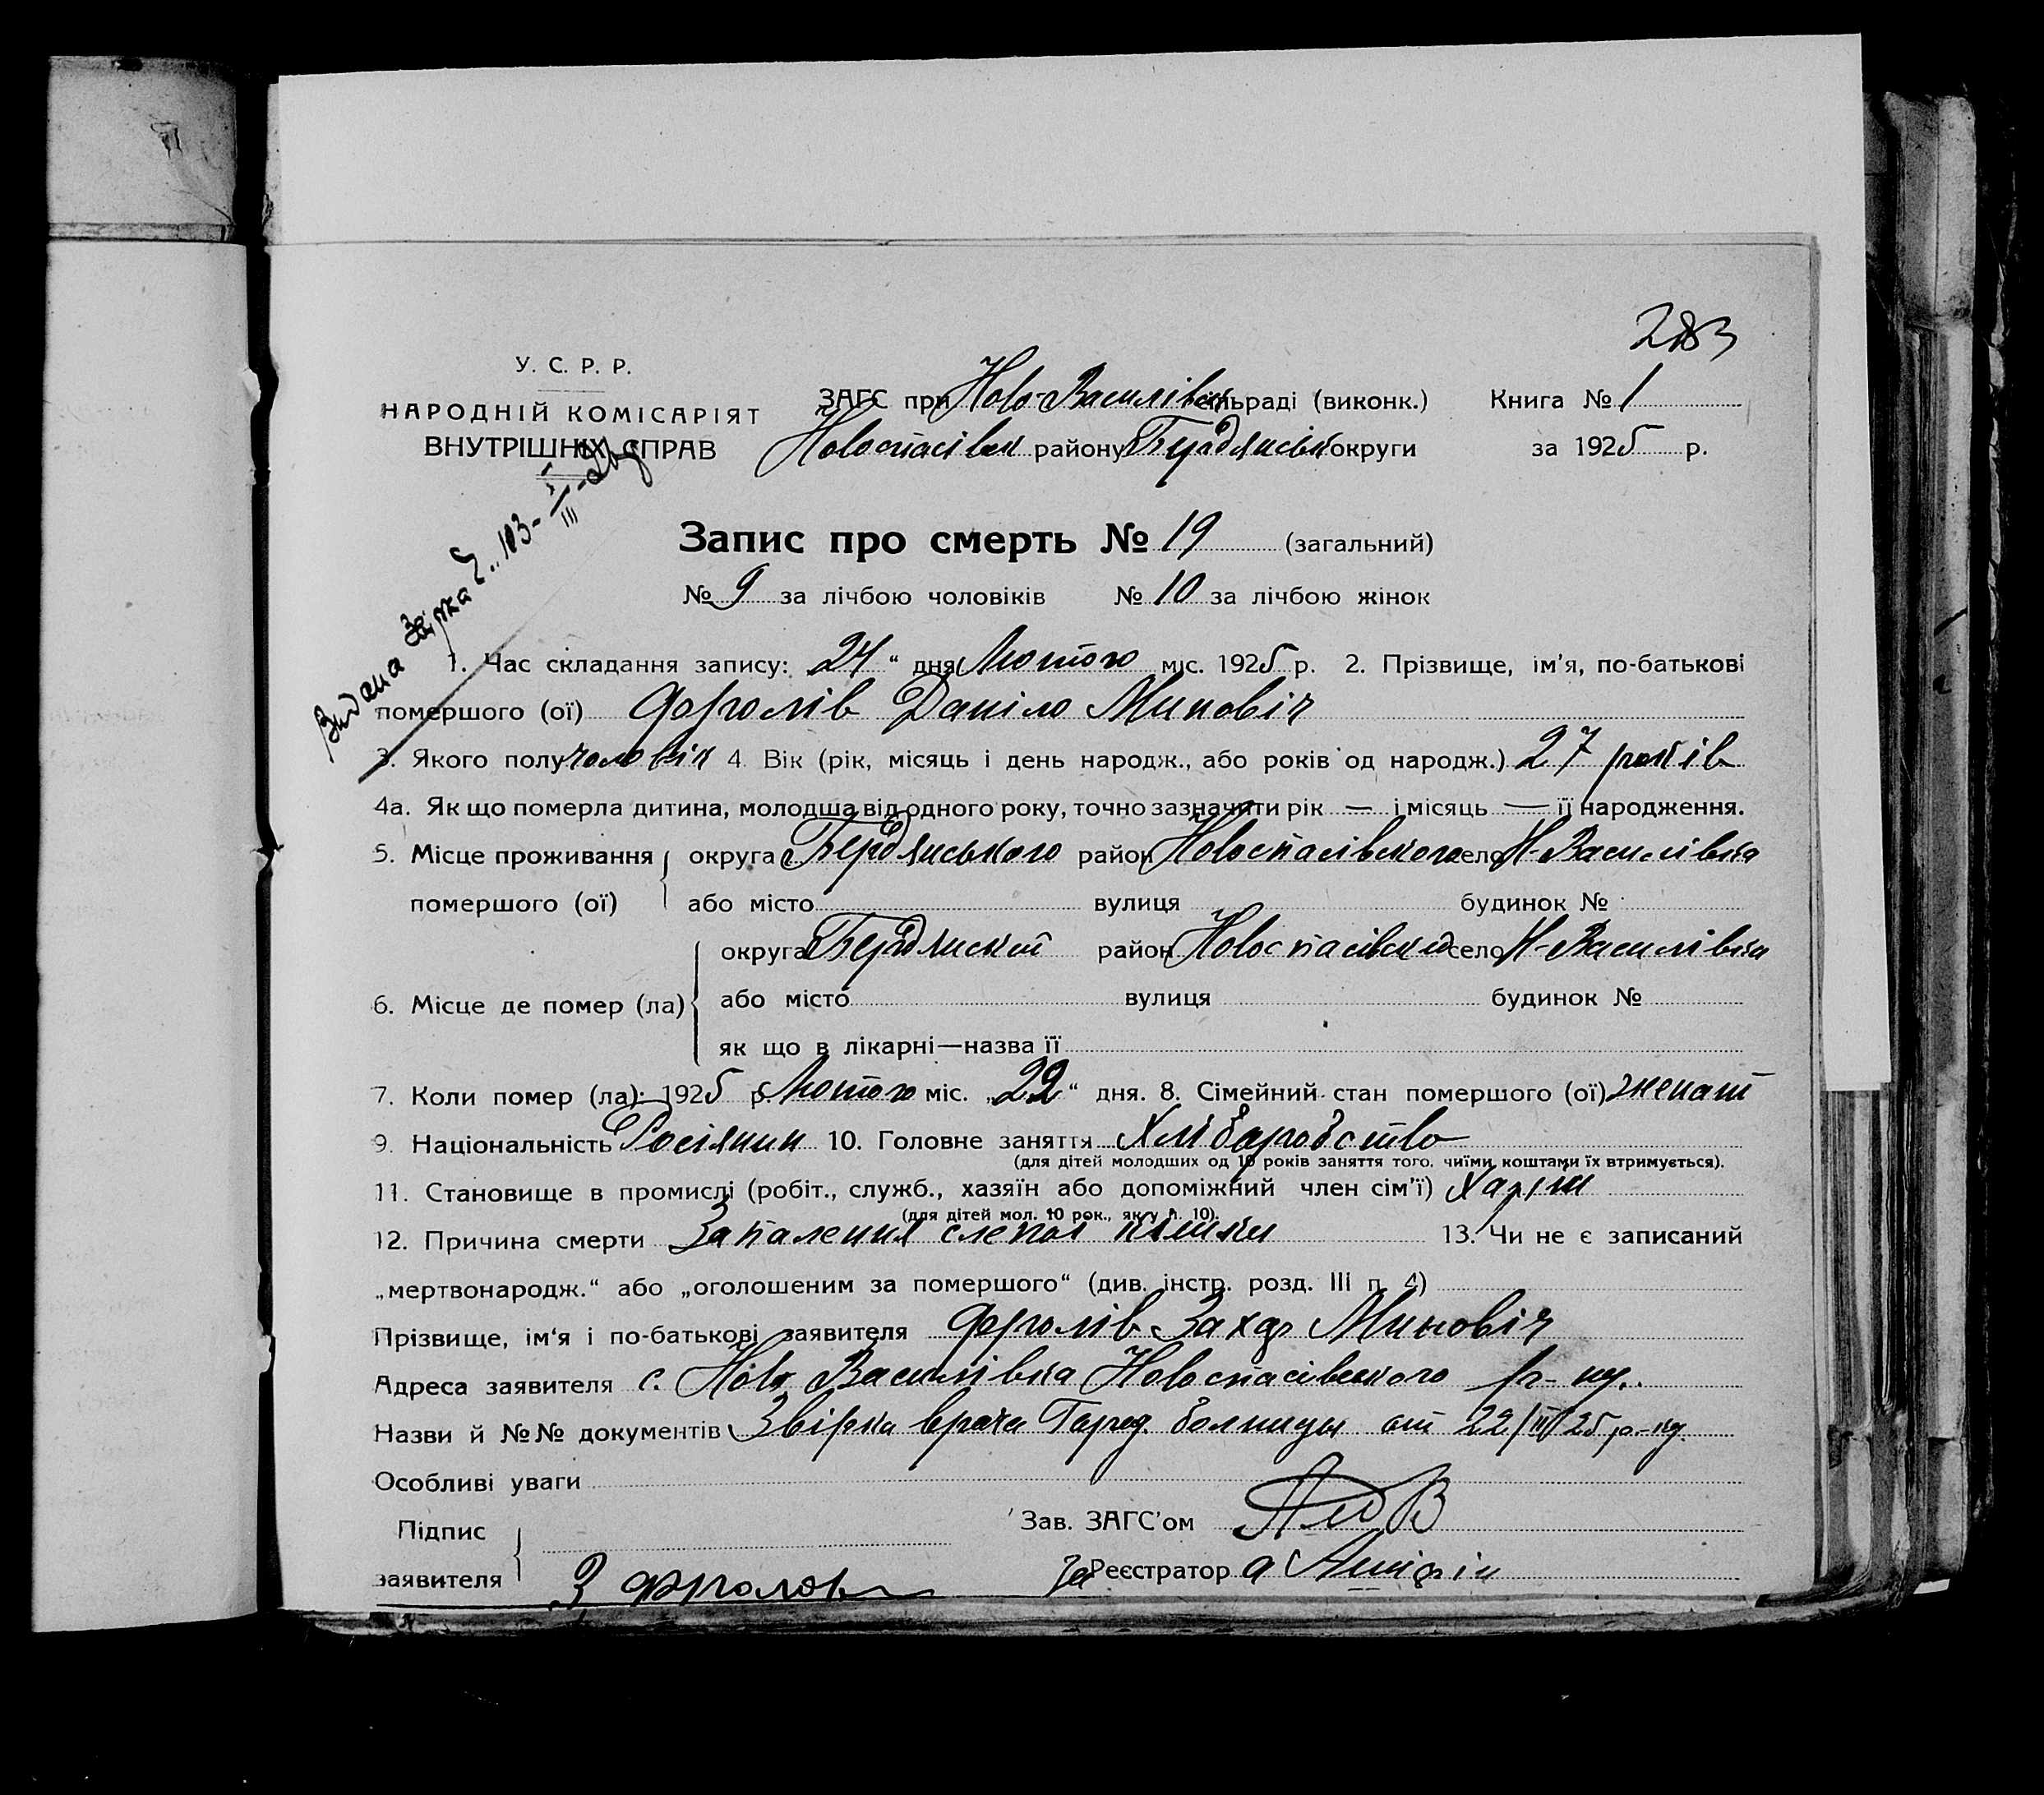 283
У. С. Р. Р.
НАРОДНІЙ КОМІСАРІЯТ
ВНУТРІШНІХ СПРАВ
ЗАГС при Ново-Василівск сільраді (виконк.) Книга № 1
Новоспасівск району Бердянськ округи за 1925 р.
Видана Звірка 103
Запис про смерть № 19 (загальний)
№ 9 за лічбою чоловіків № 10 за лічбою жінок
1. Час складання запису: 24 “ дня Лютого міс. 1925 р. 2. Прізвище, ім’я, по-батькові
помершого (ої) Фролів Даніло Миновіч
3. Якого полу чоловік 4. Вік (рік, місяць і день народж., або років од народж.) 27 років
4а. Як що померла дитина, молодша від одного року, точно зазначити рік — і місяць — її народження.
5. Місце проживання округа Бердянського район Новоспасівского село Н-Василівка
помершого (ої) або місто вулиця будинок №
округа Бердянской район Новоспасівск село Н-Василівка
6. Місце де помер (ла) або місто вулиця будинок №
як що в лікарні—назва її
7. Коли помер (ла): 1925 р. Лютого міс. „22“ дня. 8. Сімейний стан помершого (ої) женат
9. Національність Росіянин 10. Головне заняття Хліборобство
(для дітей молодших од 10 років заняття того, чиїми коштами їх втримується).
11. Становище в промислі (робіт., служб., хазяїн або допоміжний член сім’ї) Хазяін
(для дітей мол. 10 рок., як у п. 10).
12. Причина смерти Запаления слепой кишки 13. Чи не є записаний
„мертвонародж.“ або „оголошеним за помершого“ (див. інстр. розд. III п. 4)
Прізвище, ім‘я і по-батькові заявителя Фролів Захар Миновіч
Адреса заявителя с. Ново Василівка Новоспасівского р-ну.
Назви й №№ документів Звірка врача Город. болницы от 22/II 25 р-ку
Особливі уваги
Підпис Зав. ЗАГС’ом
заявителя З Фролов За Реєстратор а